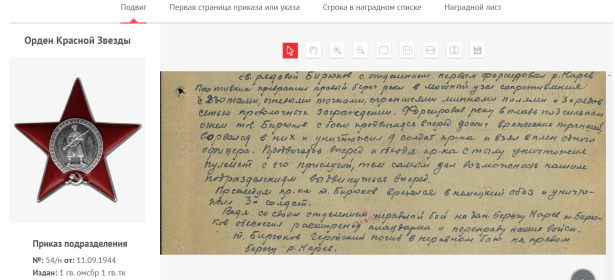 Подвиг Первая страница приказа или указа Строка в наградном списке Наградной лист
Орден Красной Звезды
Приказ подразделения
№: 54/н от: 11.09.1944
Издан: 1 гв. омсбр 1 гв. тк
гв. рядовой Бирюков с отделением первым форсировал р. Нарев
Противник превратил правый берег реки в мощный узел сопротивления
с ДЗОТами, огневыми точками, траншеями минными полями и 3х рядной
сетью проволочных заграждений. Форсировал реку в плавь под сильным
огнем тов. Бирюков с боем продвигался вперед достиг вражеских траншей,
ворвался в них и уничтожил 9 солдат пр-ка и взял в плен одного
офицера. Продвигаясь вперед и обойдя пр-ка с тылу уничтожил
пулемет с его прислугой, тем самым дал возможность нашим
подразделениям выдвинуться вперед.
Преследуя пр-ка т. Бирюков врезался в немецкий обоз и уничто-
жил 3х солдат.
Ведя со своим отделением неравный бой на зап. берегу Нарев т. Бирю-
ков обеспечил расширение плацдарма и переправу наших войск.
т. Бирюков Геройский погиб в неравном бою на правом
берегу р. Нарев.